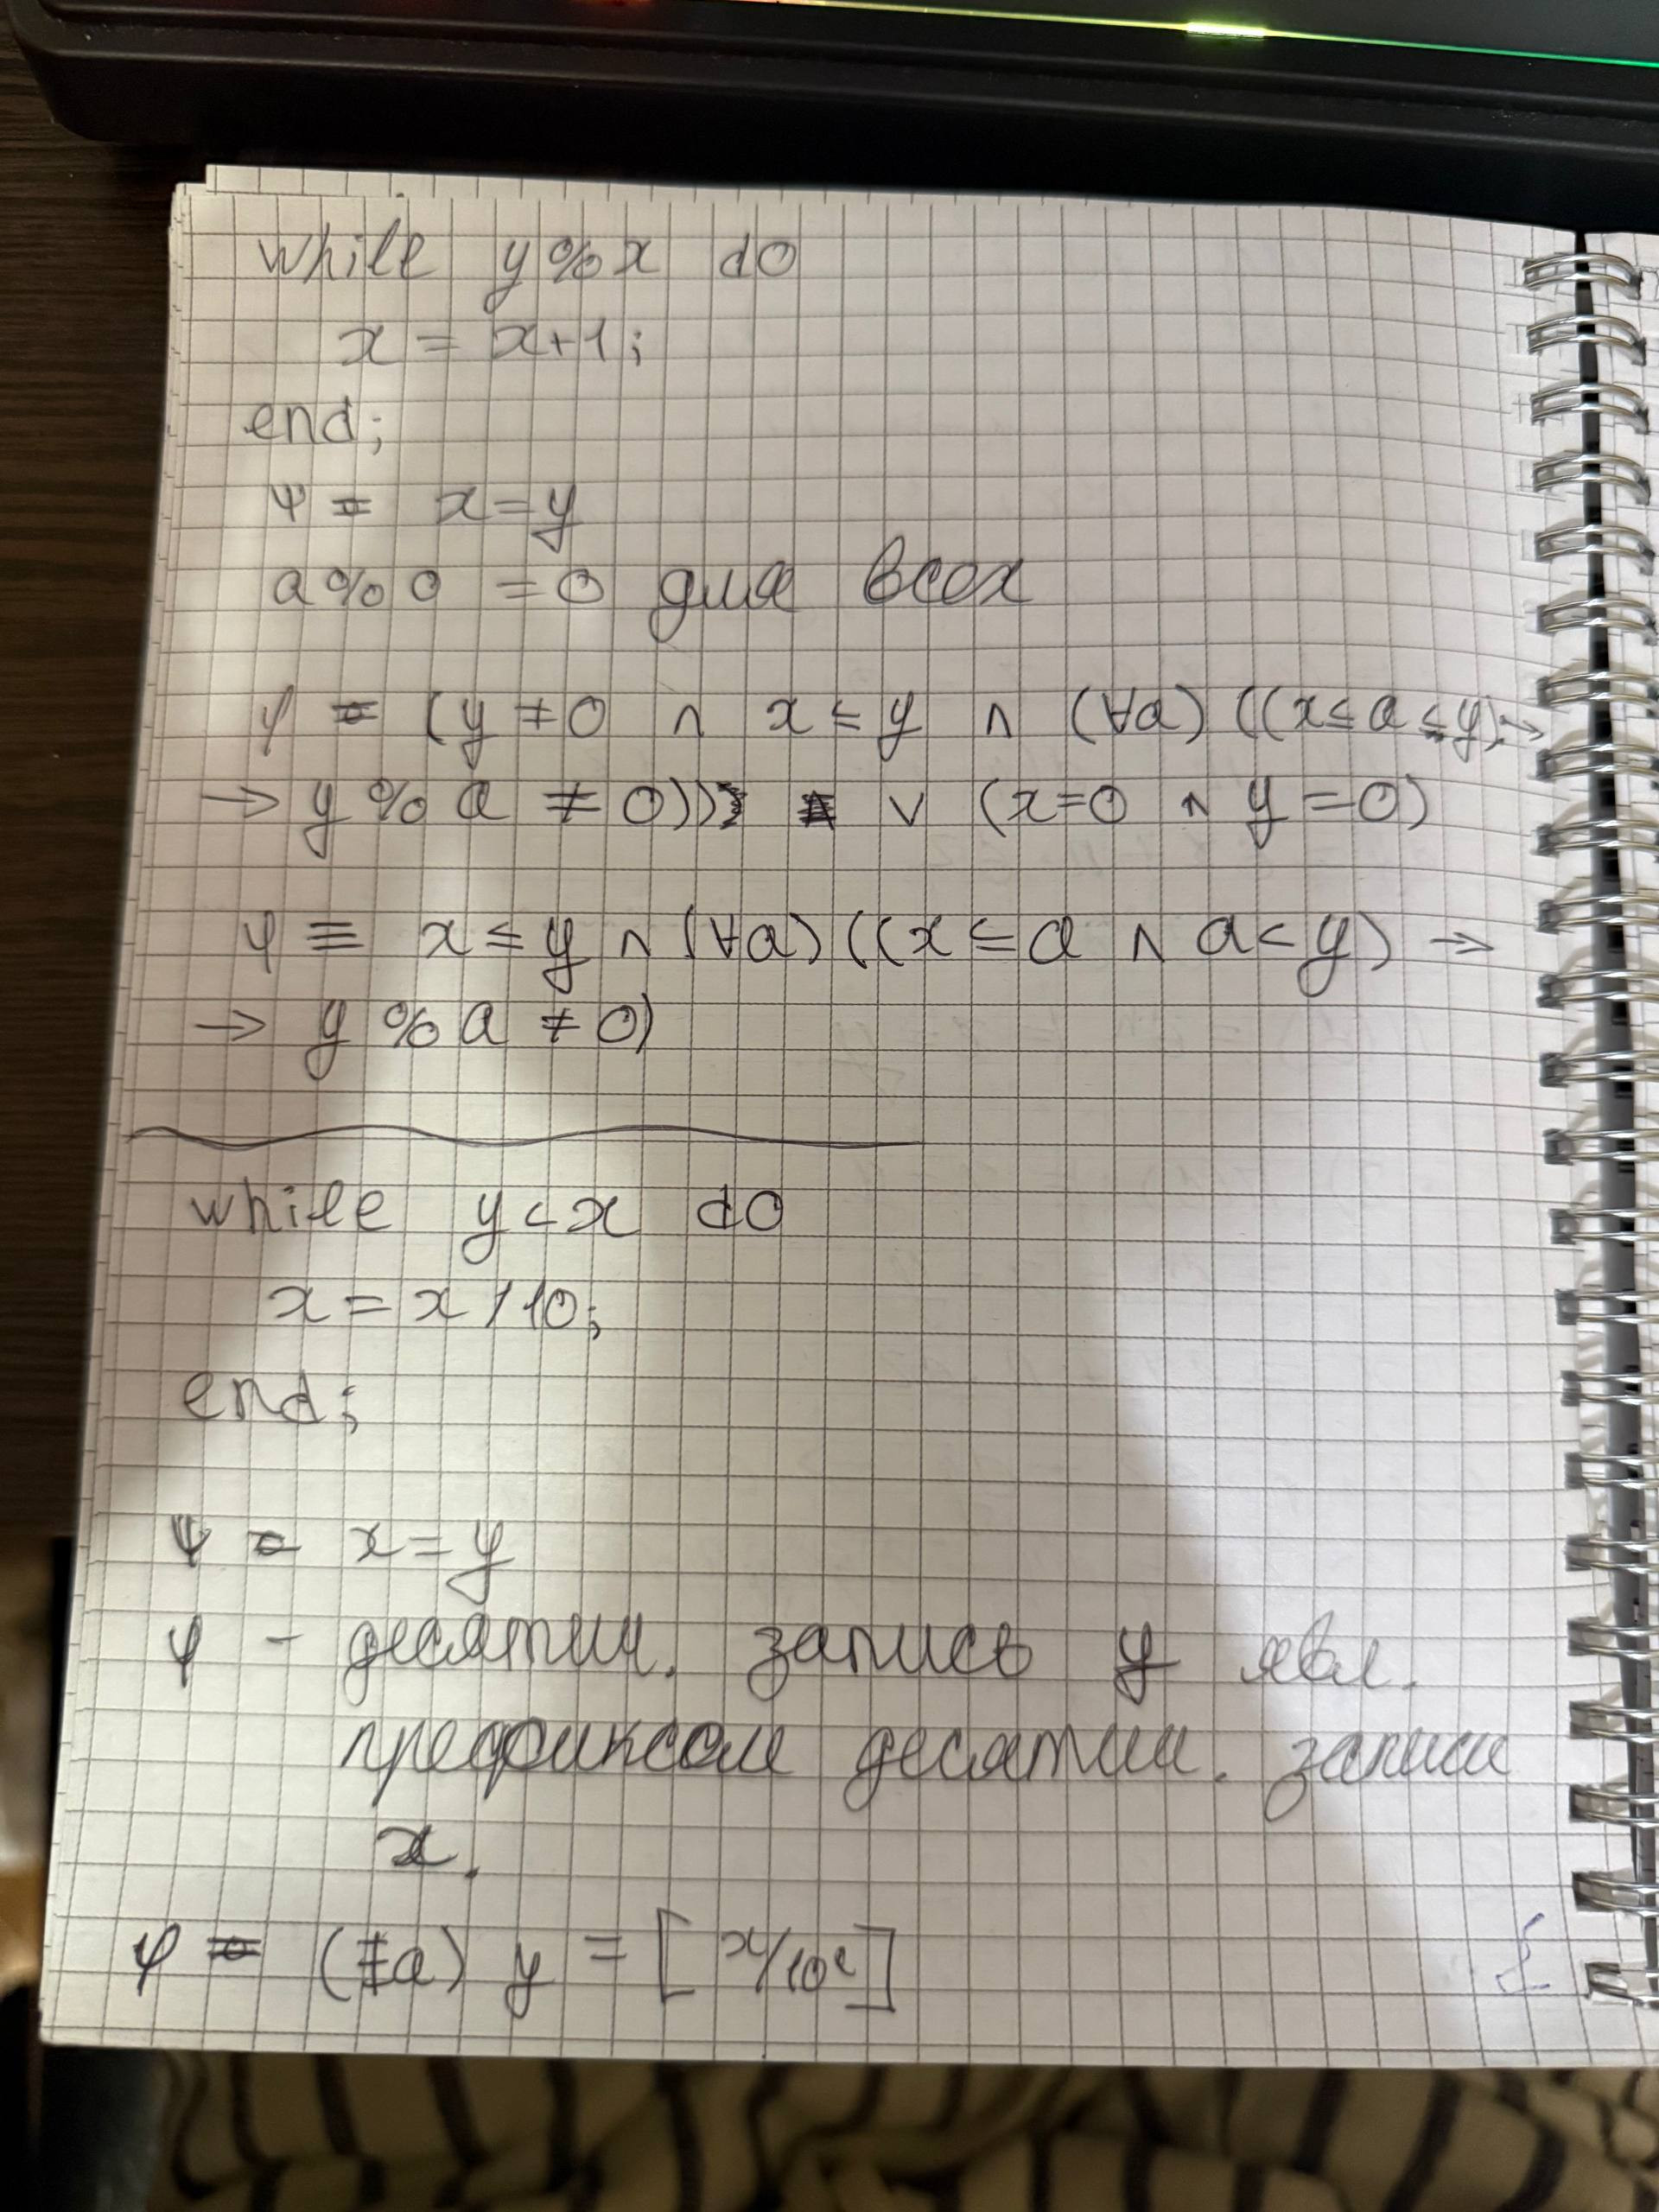 while y%x do
x = x+1;
end;
ψ = x=y
a%0 = 0 для всех
φ = (y≠0 ∧ x≤y ∧ (∀a)((x≤a≤y)→
→ y%a ≠ 0)) ∨ (x=0 ∧ y=0)
φ ≡ x≤y ∧ (∀a)((x≤a ∧ a<y) →
→ y%a ≠ 0)
while y<x do
x = x/10;
end;
ψ = x=y
φ - десятич. запись y явл.
префиксом десятич. записи
x.
φ = (∃a) y = [x/10ᵃ]